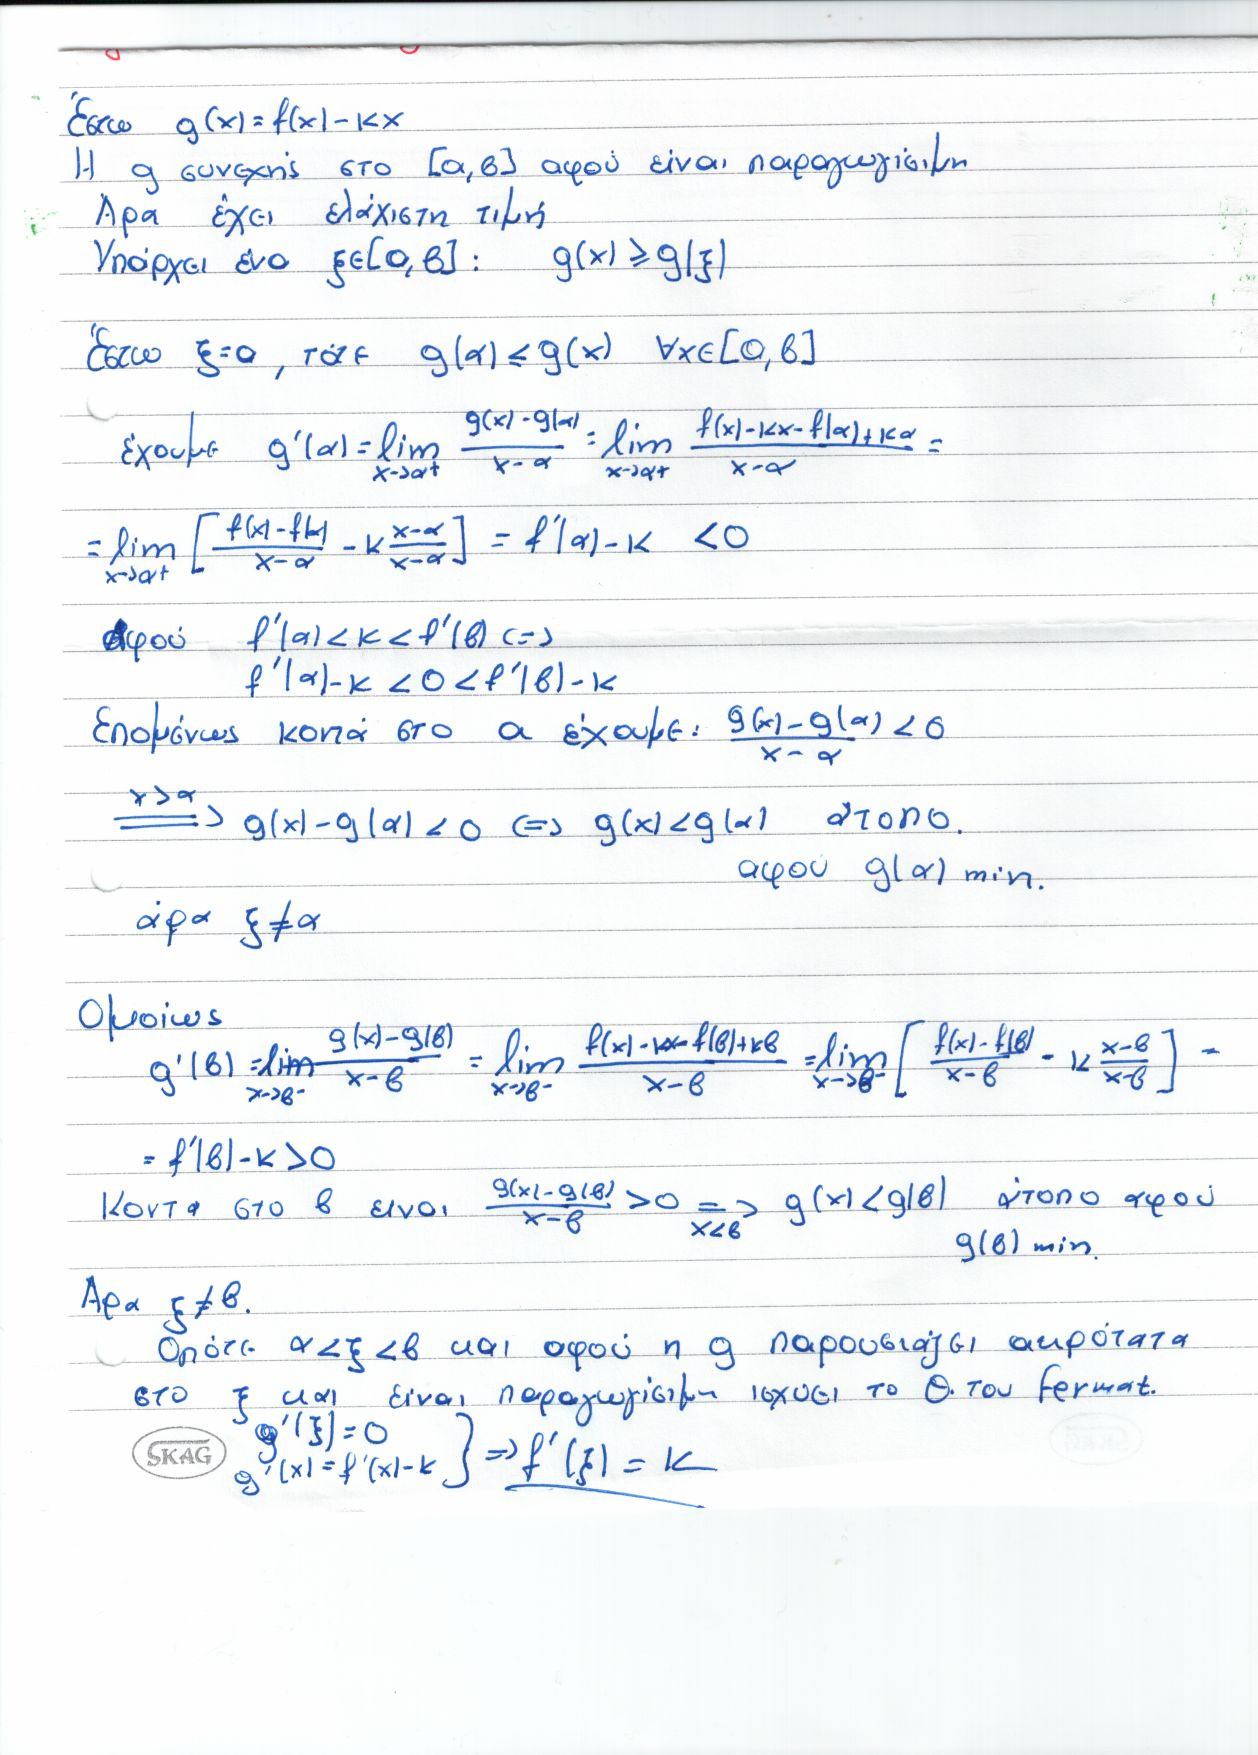 Έστω g(x)=f(x)-κx
Η g συνεχής στο [α,β] αφού είναι παραγωγίσιμη
Άρα έχει ελάχιστη τιμή
Υπάρχει ένα ξ∈[α,β]: g(x)≥g(ξ)
Έστω ξ=α, τότε g(α)≤g(x) ∀x∈[α,β]
έχουμε g'(α)=lim x->α+ (g(x)-g(α))/(x-α) = lim x->α+ (f(x)-κx-f(α)+κα)/(x-α) =
= lim x->α+ [ (f(x)-f(α))/(x-α) - κ (x-α)/(x-α) ] = f'(α)-κ <0
αφού f'(α)<κ<f'(β) <=>
f'(α)-κ <0<f'(β)-κ
Επομένως κοντά στο α έχουμε: (g(x)-g(α))/(x-α) <0
x>α ==> g(x)-g(α)<0 <=> g(x)<g(α) άτοπο.
αφού g(α) min.
άρα ξ≠α
Ομοίως
g'(β)=lim x->β- (g(x)-g(β))/(x-β) = lim x->β- (f(x)-κx-f(β)+κβ)/(x-β) = lim x->β- [ (f(x)-f(β))/(x-β) - κ (x-β)/(x-β) ] =
= f'(β)-κ>0
Κοντά στο β είναι (g(x)-g(β))/(x-β) >0 => x<β g(x)<g(β) άτοπο αφού
g(β) min.
Άρα ξ≠β.
Οπότε α<ξ<β και αφού η g παρουσιάζει ακρότατα
στο ξ και είναι παραγωγίσιμη ισχύει το Θ. του Fermat.
g'(ξ)=0
g'(x)=f'(x)-κ } => f'(ξ)=κ
SKAG